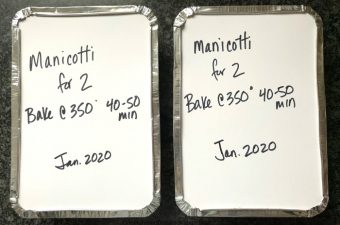 Manicotti
for 2
Bake @ 350° 40-50
min
Jan. 2020
Manicotti
for 2
Bake @ 350° 40-50
min
Jan. 2020